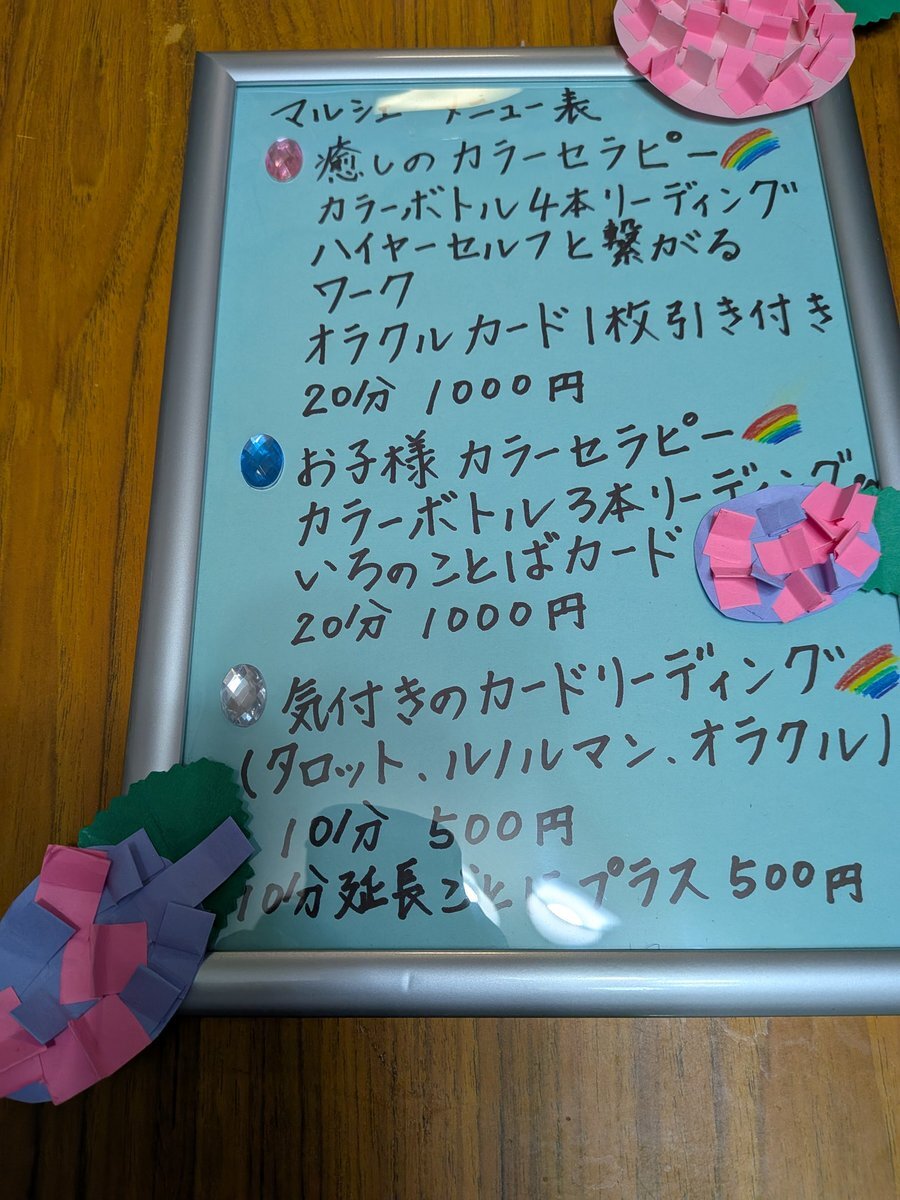 マルシェ メニュー表
癒しのカラーセラピー
カラーボトル4本リーディング
ハイヤーセルフと繋がる
ワーク
オラクルカード1枚引き付き
20分 1000円
お子様カラーセラピー
カラーボトル3本リーディング。
いろのことばカード
20分 1000円
気付きのカードリーディング
(タロット、ルノルマン、オラクル)
10分 500円
10分延長ごとにプラス500円